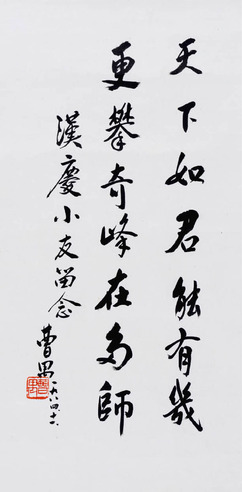 天下如君能有幾
更攀奇峰在多師
漢慶小友留念
曹禺
一九八四 十六